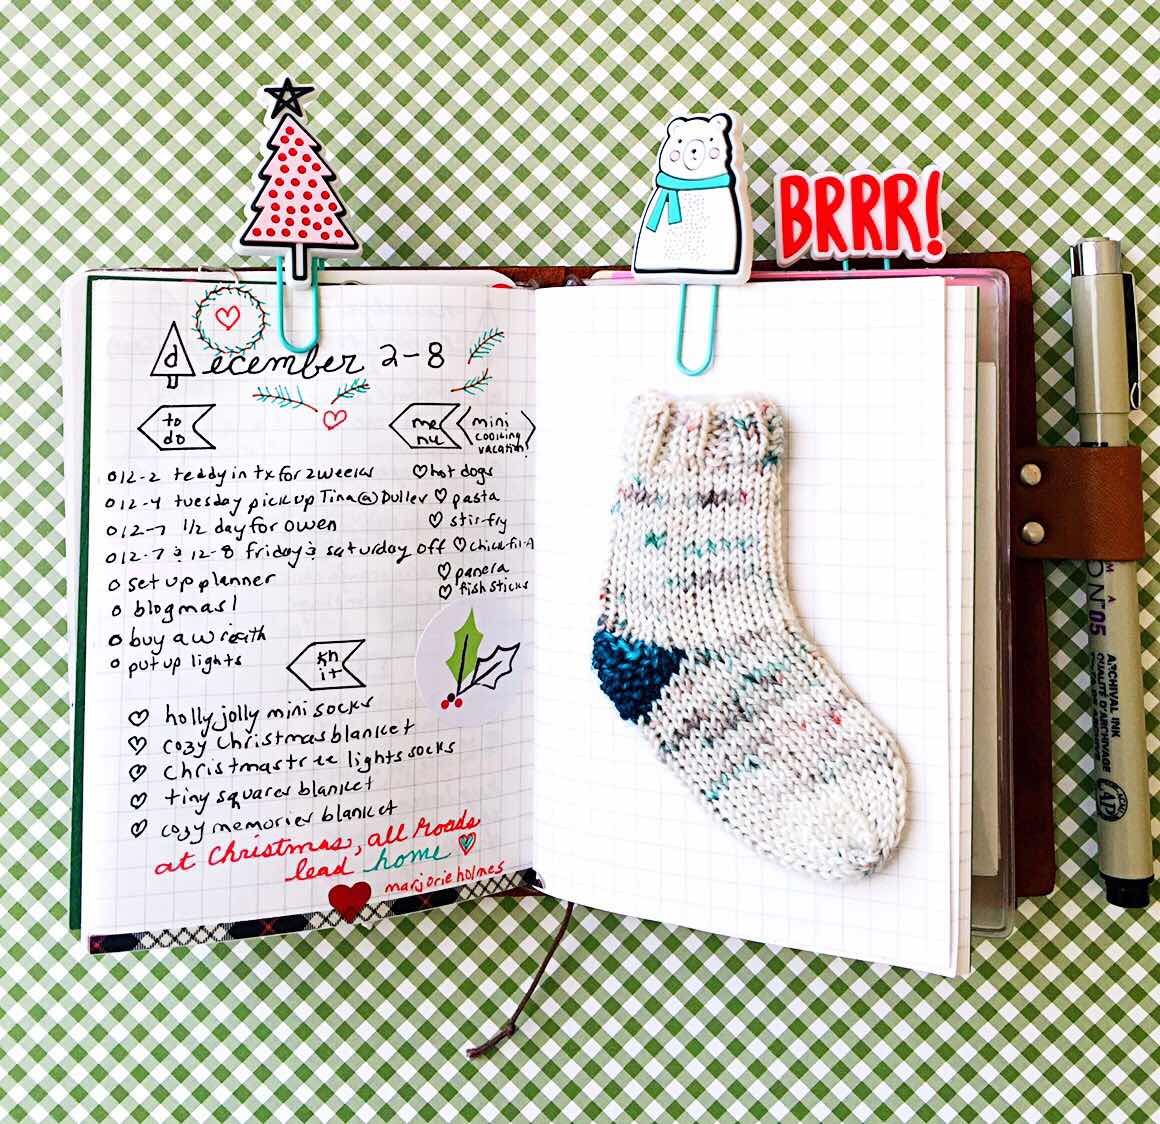 BRRR!
december 2-8
to
do
o 12-2 teddy in tx for 2 weeks
o 12-4 tuesday pick up Tina @ Duller
o 12-7 1/2 day for owen
o 12-7 & 12-8 friday & saturday off
o set up planner
o blogmas!
o buy a wreath
o put up lights
me
nu
mini
cooking
vacation!
♡ hot dogs
♡ pasta
♡ stir-fry
♡ chick-fil-A
♡ panera
♡ fish sticks
kn
it
♡ holly jolly mini socks
♡ cozy christmas blanket
♡ christmas tree lights socks
♡ tiny squares blanket
♡ cozy memories blanket
at Christmas, all roads
lead home
marjorie holmes
N 05
ARCHIVAL INK
QUALITÉ D'ARCHIVAGE
AP